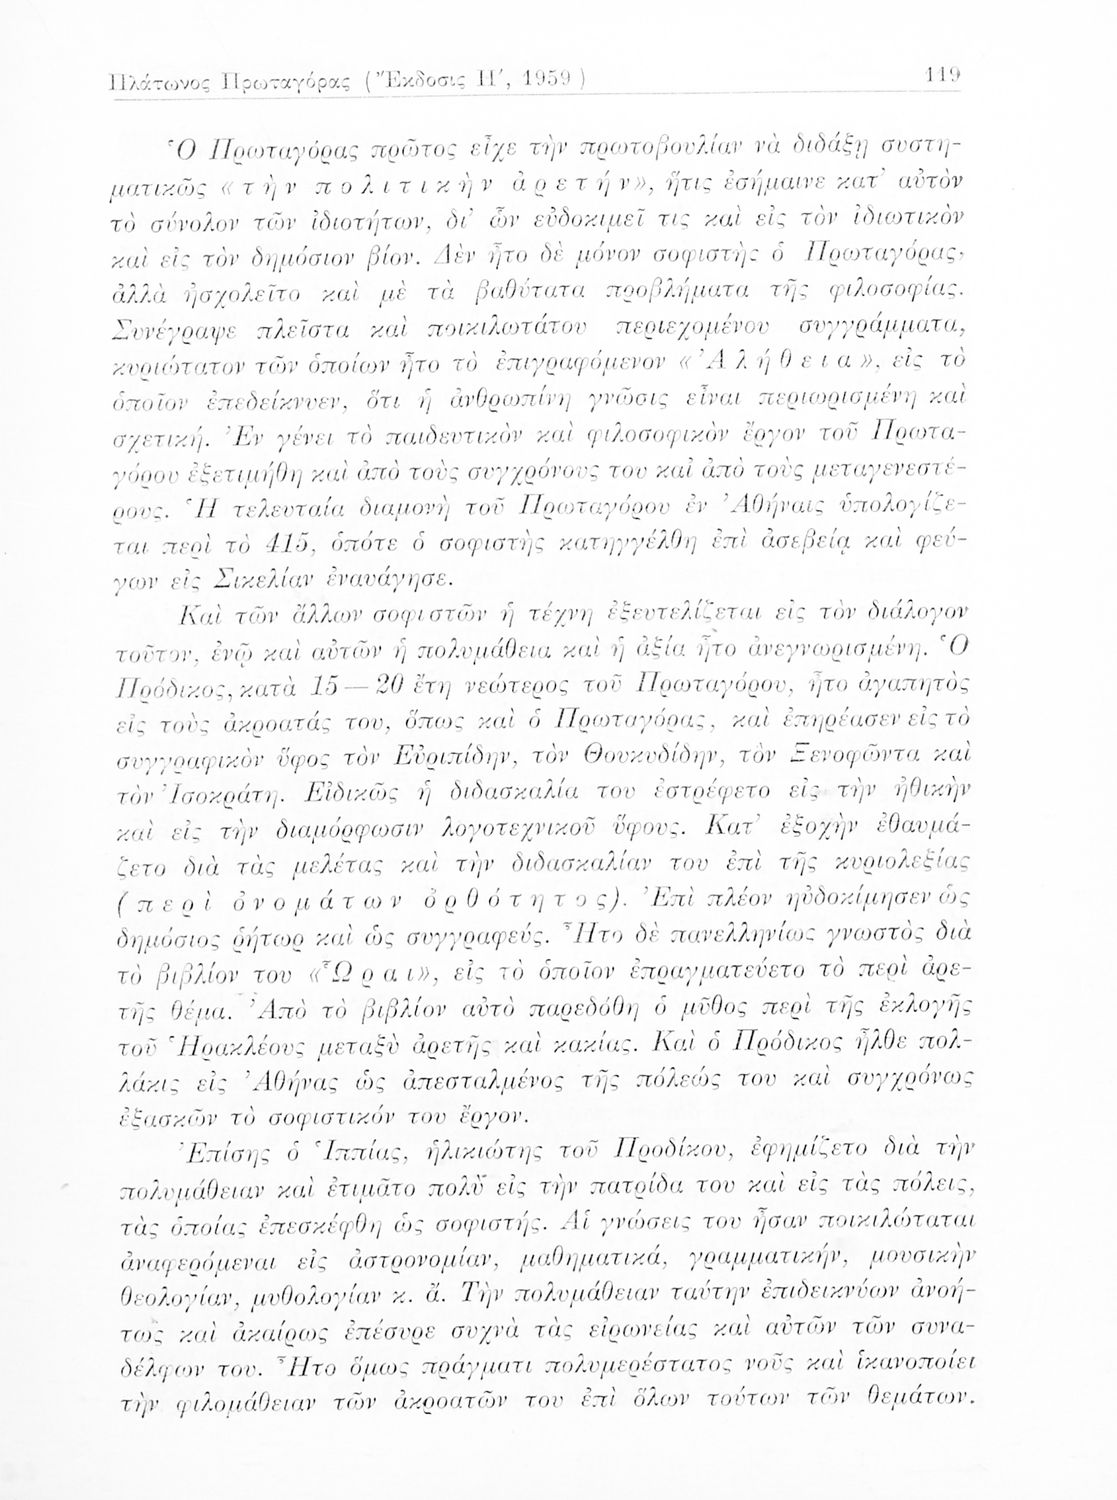 Πλάτωνος Πρωταγόρας ( Ἔκδοσις Η΄, 1959 ) 119
Ὁ Πρωταγόρας πρῶτος εἶχε τὴν πρωτοβουλίαν νὰ διδάξῃ συστη-
ματικῶς « τ ὴ ν π ο λ ι τ ι κ ὴ ν ἀ ρ ε τ ή ν», ἥτις ἐσήμαινε κατ᾽ αὐτὸν
τὸ σύνολον τῶν ἰδιοτήτων, δι᾽ ὧν εὐδοκιμεῖ τις καὶ εἰς τὸν ἰδιωτικὸν
καὶ εἰς τὸν δημόσιον βίον. Δὲν ἦτο δὲ μόνον σοφιστὴς ὁ Πρωταγόρας,
ἀλλὰ ἠσχολεῖτο καὶ μὲ τὰ βαθύτατα προβλήματα τῆς φιλοσοφίας.
Συνέγραψε πλεῖστα καὶ ποικιλωτάτου περιεχομένου συγγράμματα,
κυριώτατον τῶν ὁποίων ἦτο τὸ ἐπιγραφόμενον « Ἀ λ ή θ ε ι α », εἰς τὸ
ὁποῖον ἐπεδείκνυεν, ὅτι ἡ ἀνθρωπίνη γνῶσις εἶναι περιωρισμένη καὶ
σχετική. Ἐν γένει τὸ παιδευτικὸν καὶ φιλοσοφικὸν ἔργον τοῦ Πρωτα-
γόρου ἐξετιμήθη καὶ ἀπὸ τοὺς συγχρόνους του καὶ ἀπὸ τοὺς μεταγενεστέ-
ρους. Ἡ τελευταία διαμονὴ τοῦ Πρωταγόρου ἐν Ἀθήναις ὑπολογίζε-
ται περὶ τὸ 415, ὁπότε ὁ σοφιστὴς κατηγγέλθη ἐπὶ ἀσεβείᾳ καὶ φεύ-
γων εἰς Σικελίαν ἐναυάγησε.
Καὶ τῶν ἄλλων σοφιστῶν ἡ τέχνη ἐξευτελίζεται εἰς τὸν διάλογον
τοῦτον, ἐνῷ καὶ αὐτῶν ἡ πολυμάθεια καὶ ἡ ἀξία ἦτο ἀνεγνωρισμένη. Ὁ
Πρόδικος, κατὰ 15 — 20 ἔτη νεώτερος τοῦ Πρωταγόρου, ἦτο ἀγαπητὸς
εἰς τοὺς ἀκροατάς του, ὅπως καὶ ὁ Πρωταγόρας, καὶ ἐπηρέασεν εἰς τὸ
συγγραφικὸν ὕφος τὸν Εὐριπίδην, τὸν Θουκυδίδην, τὸν Ξενοφῶντα καὶ
τὸν Ἰσοκράτη. Εἰδικῶς ἡ διδασκαλία του ἐστρέφετο εἰς τὴν ἠθικὴν
καὶ εἰς τὴν διαμόρφωσιν λογοτεχνικοῦ ὕφους. Κατ᾽ ἐξοχὴν ἐθαυμά-
ζετο διὰ τὰς μελέτας καὶ τὴν διδασκαλίαν του ἐπὶ τῆς κυριολεξίας
( π ε ρ ὶ ὀ ν ο μ ά τ ω ν ὀ ρ θ ό τ η τ ο ς). Ἐπὶ πλέον ηὐδοκίμησεν ὡς
δημόσιος ῥήτωρ καὶ ὡς συγγραφεύς. Ἦτο δὲ πανελληνίως γνωστὸς διὰ
τὸ βιβλίον του «Ὧ ρ α ι», εἰς τὸ ὁποῖον ἐπραγματεύετο τὸ περὶ ἀρε-
τῆς θέμα. Ἀπὸ τὸ βιβλίον αὐτὸ παρεδόθη ὁ μῦθος περὶ τῆς ἐκλογῆς
τοῦ Ἡρακλέους μεταξὺ ἀρετῆς καὶ κακίας. Καὶ ὁ Πρόδικος ἦλθε πολ-
λάκις εἰς Ἀθήνας ὡς ἀπεσταλμένος τῆς πόλεώς του καὶ συγχρόνως
ἐξασκῶν τὸ σοφιστικόν του ἔργον.
Ἐπίσης ὁ Ἱππίας, ἡλικιώτης τοῦ Προδίκου, ἐφημίζετο διὰ τὴν
πολυμάθειαν καὶ ἐτιμᾶτο πολὺ εἰς τὴν πατρίδα του καὶ εἰς τὰς πόλεις,
τὰς ὁποίας ἐπεσκέφθη ὡς σοφιστής. Αἱ γνώσεις του ἦσαν ποικιλώταται
ἀναφερόμεναι εἰς ἀστρονομίαν, μαθηματικά, γραμματικήν, μουσικὴν
θεολογίαν, μυθολογίαν κ. ἄ. Τὴν πολυμάθειαν ταύτην ἐπιδεικνύων ἀνοή-
τως καὶ ἀκαίρως ἐπέσυρε συχνὰ τὰς εἰρωνείας καὶ αὐτῶν τῶν συνα-
δέλφων του. Ἦτο ὅμως πράγματι πολυμερέστατος νοῦς καὶ ἱκανοποίει
τὴν φιλομάθειαν τῶν ἀκροατῶν του ἐπὶ ὅλων τούτων τῶν θεμάτων.